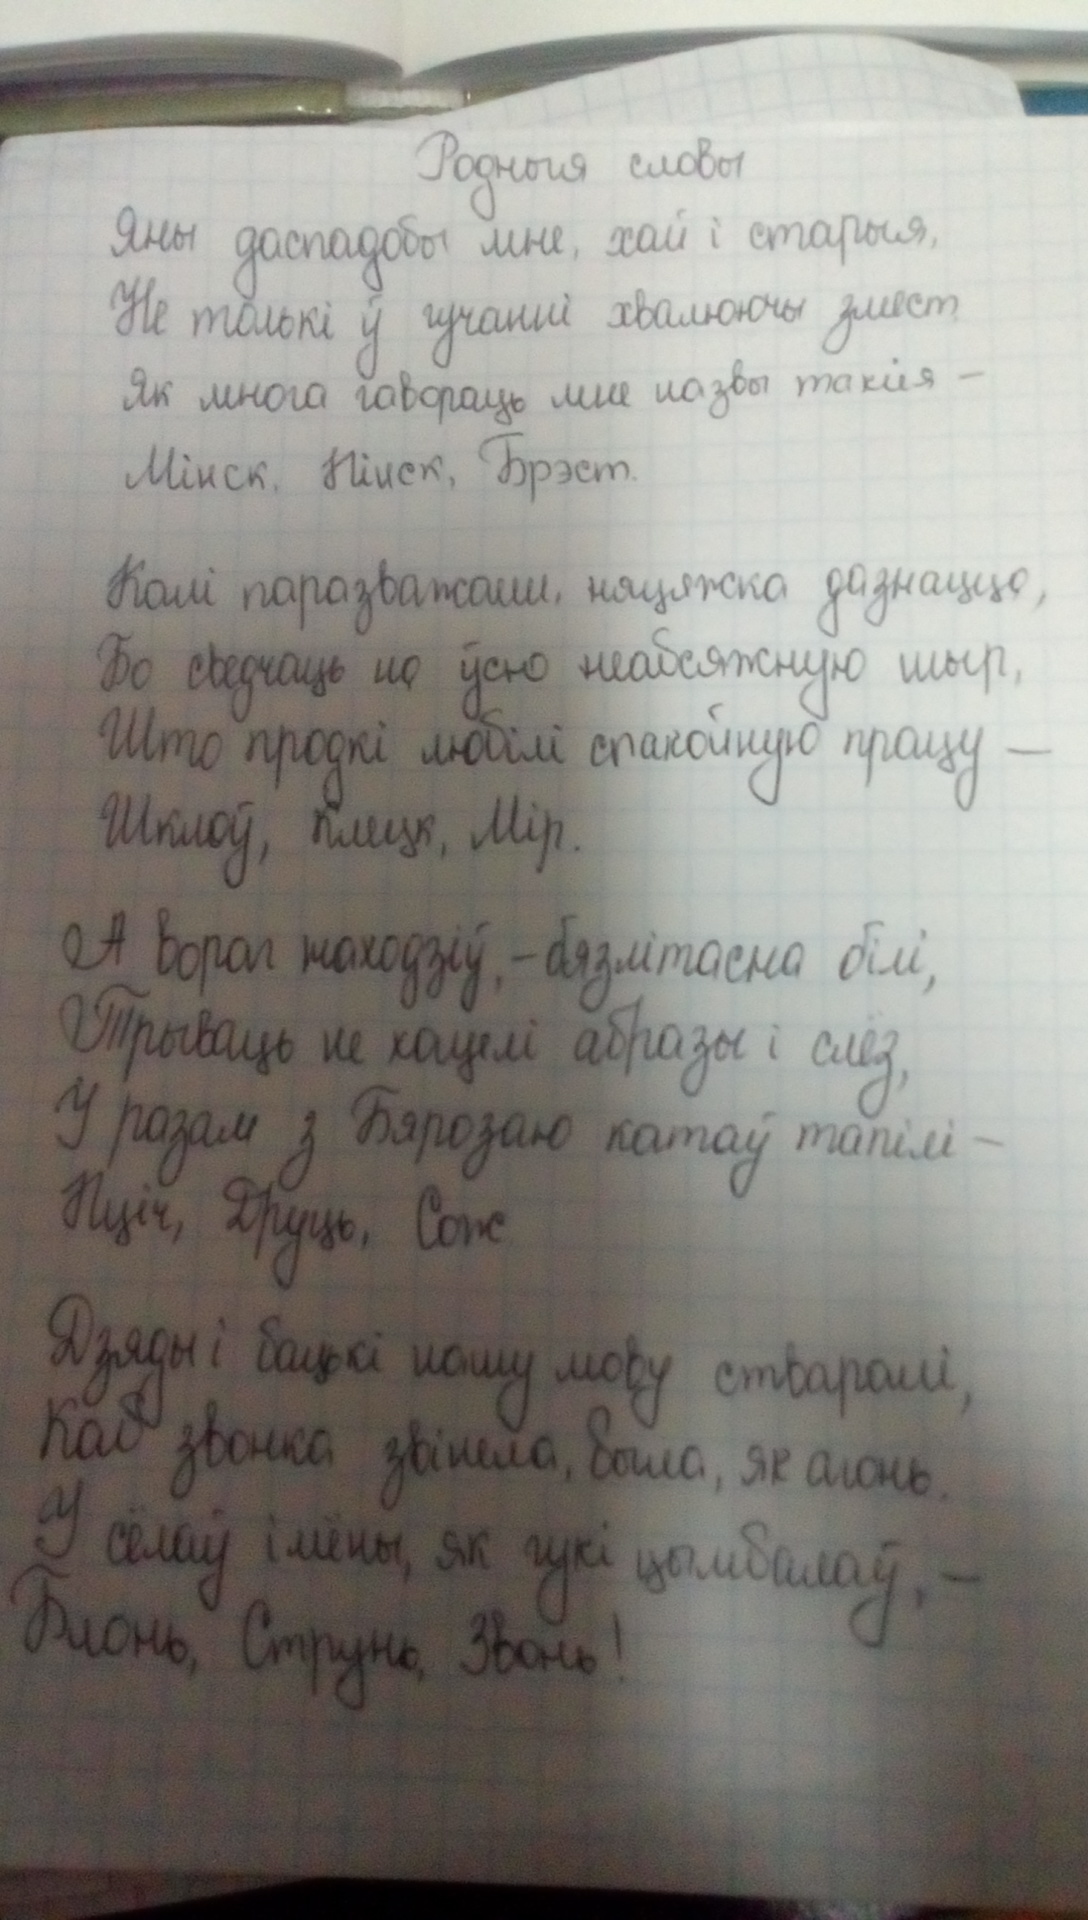 Родныя словы
Яны даспадобы мне, хай і старыя,
Не толькі ў гучанні хвалюючы змест
Як многа гавораць мне назвы такія –
Мінск. Пінск, Брэст.
Калі паразважаеш, няцяжка дазнацца,
Бо сведчаць на ўсю неабсяжную шыр,
Што продкі любілі спакойную працу –
Шклоў, Клецк, Мір.
А вораг знаходзіў, – бязлітасна білі,
Трываць не хацелі абразы і слёз,
І разам з Бярозаю катаў тапілі –
Пціч, Друць, Сож
Дзяды і бацькі нашу мову стваралі,
Каб звонка звінела, была, як агонь.
У сёлаў імёны, як гукі цымбалаў, –
Блонь, Струнь, Звонь!